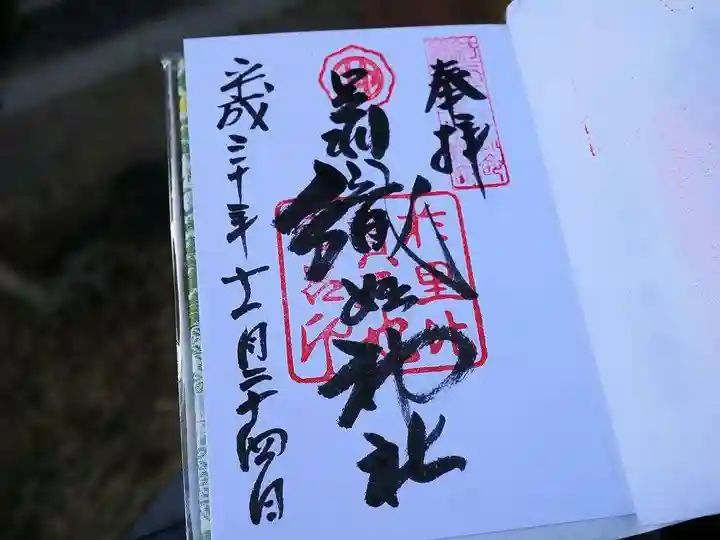 奉拝
足利織姫神社
平成三十年十二月二十四日